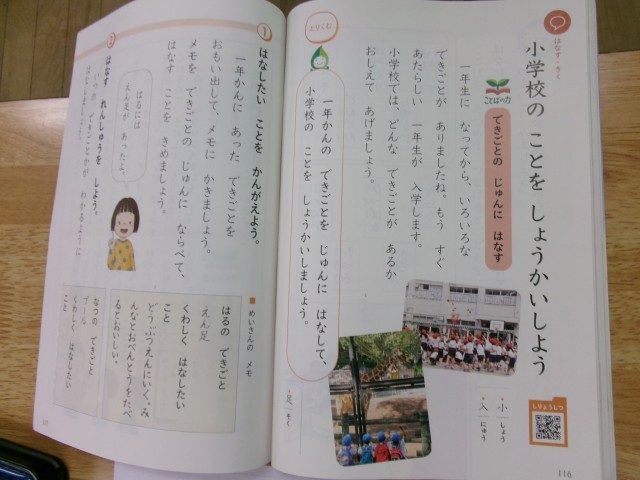 はなす・きく
小学校の ことを しょうかいしよう
ことばの力
できごとの じゅんに はなす
一年生に なってから、いろいろな
できごとが ありましたね。もう すぐ
あたらしい 一年生が 入学します。
小学校では、どんな できごとが あるか
おしえて あげましょう。
とりくむ
一年かんの できごとを じゅんに はなして、
小学校の ことを しょうかいしましょう。
小 しょう
入 にゅう
足 そく
しりょうしつ
116
① はなしたい ことを かんがえよう。
一年かんに あった できごとを
おもい出して、メモに かきましょう。
メモを できごとの じゅんに ならべて、
はなす ことを きめましょう。
はるには
えん足が あったよ。
② はなす れんしゅうを しよう。
いつの できごとかが わかるように
めいさんの メモ
はるの できごと
えん足
くわしく はなしたい
こと
どうぶつえんにいく。み
んなとおべんとうをたべ
るとおいしい。
なつの できごと
プール
くわしく はなしたい
こと